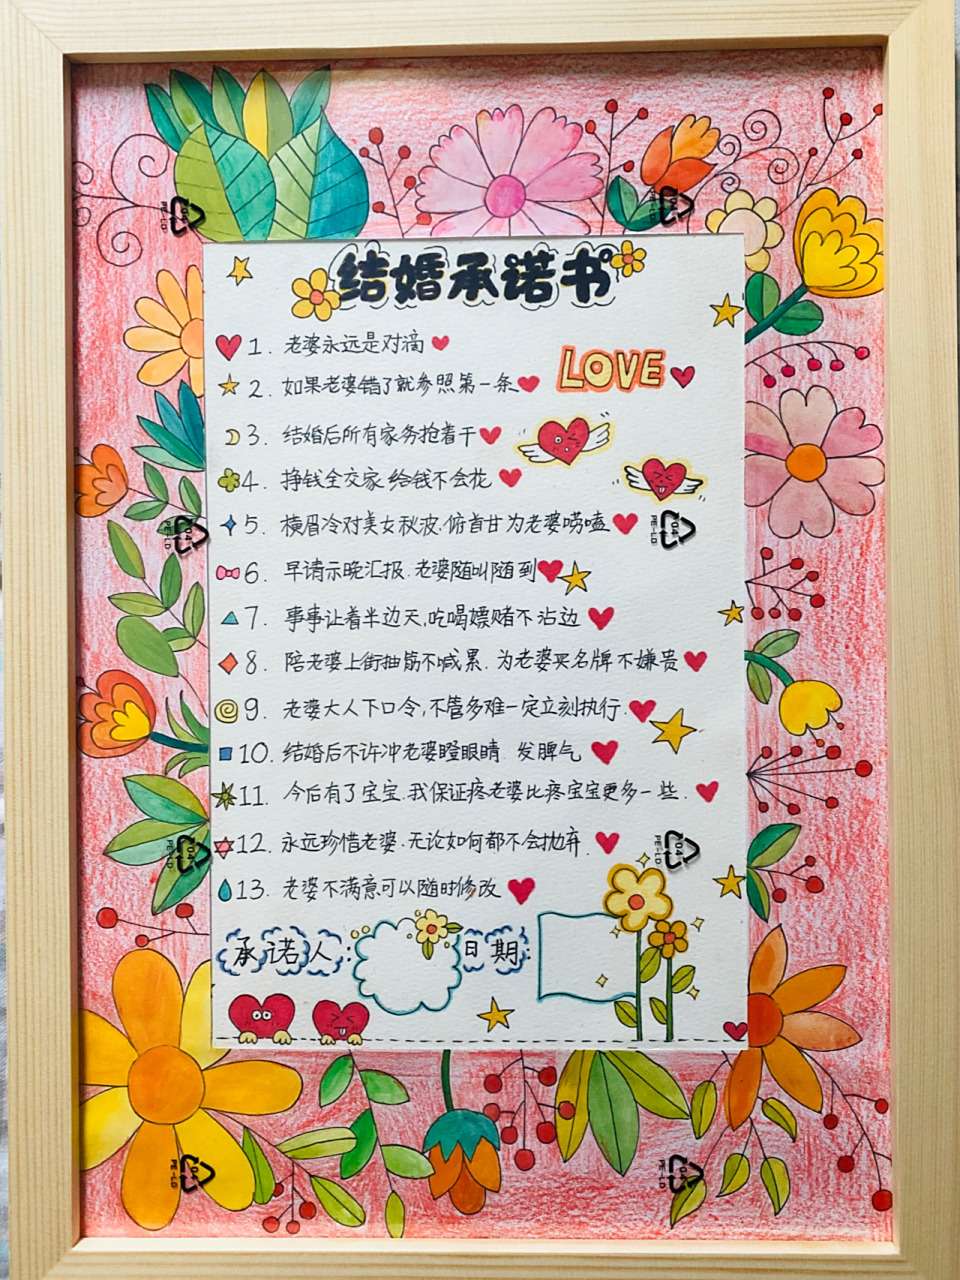 结婚承诺书
1. 老婆永远是对滴
LOVE
2. 如果老婆错了就参照第一条
3. 结婚后所有家务抢着干
4. 挣钱全交家.给钱不会花
5. 横眉冷对美女秋波.俯首甘为老婆唠嗑
6. 早请示晚汇报.老婆随叫随到
7. 事事让着半边天,吃喝嫖赌不沾边
8. 陪老婆上街抽筋不喊累.为老婆买名牌不嫌贵
9. 老婆大人下口令,不管多难一定立刻执行.
10. 结婚后不许冲老婆瞪眼睛.发脾气
11. 今后有了宝宝.我保证疼老婆比疼宝宝更多一些.
12. 永远珍惜老婆.无论如何都不会抛弃.
13. 老婆不满意可以随时修改
承诺人: 日期:
04
PE-LD
04
PE-LD
04
PE-LD
04
PE-LD
04
PE-LD
04
PE-LD
04
PE-LD
04
PE-LD